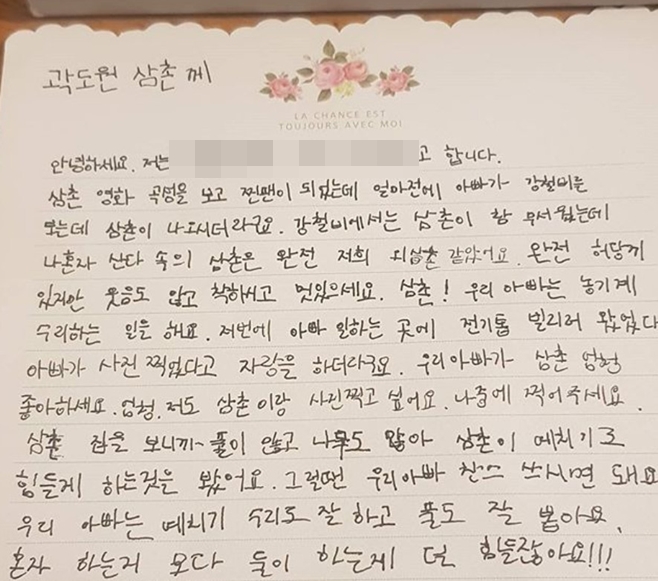 곽도원 삼촌께
LA CHANCE EST
TOUJOURS AVEC MOI
안녕하세요. 저는 고 합니다.
삼촌 영화 곡성을 보고 찐팬이 되었는데 얼마전에 아빠가 강철비를
보는데 삼촌이 나오시더라구요. 강철비에서는 삼촌이 참 무서웠는데
나혼자 산다 속의 삼촌은 완전 저희 외삼촌 같았어요. 완전 허당끼
있지만 웃음도 많고 착하시고 멋있으세요. 삼촌! 우리 아빠는 농기계
수리하는 일을 해요. 저번에 아빠 일하는 곳에 전기톱 빌리러 왔었다
아빠가 사진 찍었다고 자랑을 하더라구요. 우리아빠가 삼촌 엄청
좋아하세요. 엄청. 저도 삼촌이랑 사진찍고 싶어요. 나중에 찍어주세요.
삼촌 집을 보니까~ 풀이 많고 나무도 많아 삼촌이 예치기로
힘들게 하는것을 봤어요. 그럴땐 우리아빠 찬스 쓰시면 돼요
우리 아빠는 예치기 수리도 잘 하고 풀도 잘 뽑아요.
혼자 하는거 보다 둘이 하는게 덜 힘들잖아요!!!